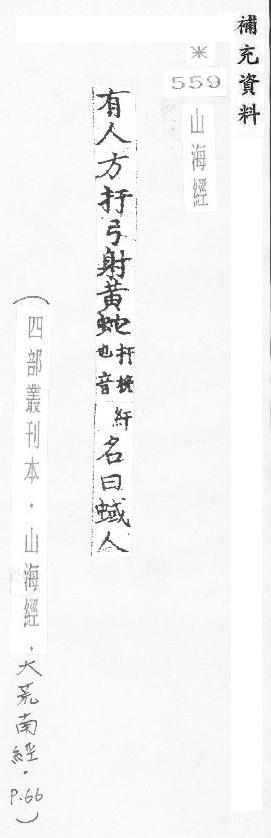 補充資料
※
559
山海經
有人方扜弓射黃蛇扜挽也音紆名曰蜮人
(四部叢刊本.山海經.大荒南經.P.66)